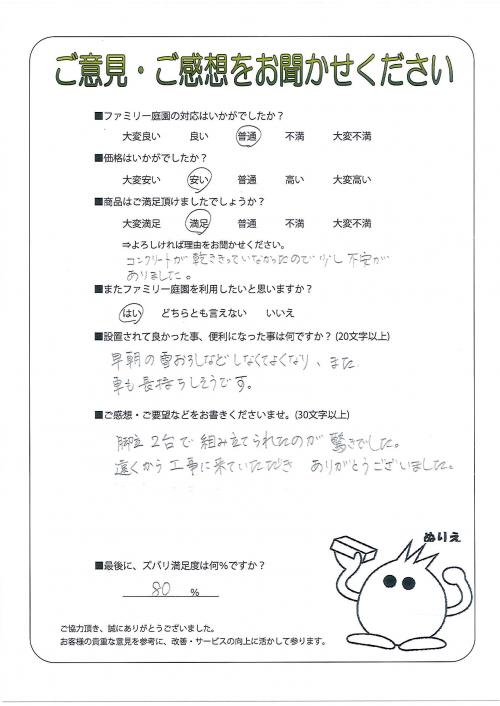 ご意見・ご感想をお聞かせください
■ファミリー庭園の対応はいかがでしたか？
大変良い 良い 普通 不満 大変不満
■価格はいかがでしたか？
大変安い 安い 普通 高い 大変高い
■商品はご満足頂けましたでしょうか？
大変満足 満足 普通 不満 大変不満
⇒よろしければ理由をお聞かせください。
コンクリートが乾ききっていなかったので少し不安が
ありました。
■またファミリー庭園を利用したいと思いますか？
はい どちらとも言えない いいえ
■設置されて良かった事、便利になった事は何ですか？(20文字以上)
早朝の雪おろしなどしなくてよくなり、また
車も長持ちしそうです。
■ご感想・ご要望などをお書きくださいませ。(30文字以上)
脚立2台で組み立てられたのが驚きでした。
遠くから工事に来ていただき ありがとうございました。
ぬりえ
■最後に、ズバリ満足度は何%ですか？
80 %
ご協力頂き、誠にありがとうございました。
お客様の貴重な意見を参考に、改善・サービスの向上に活かして参ります。